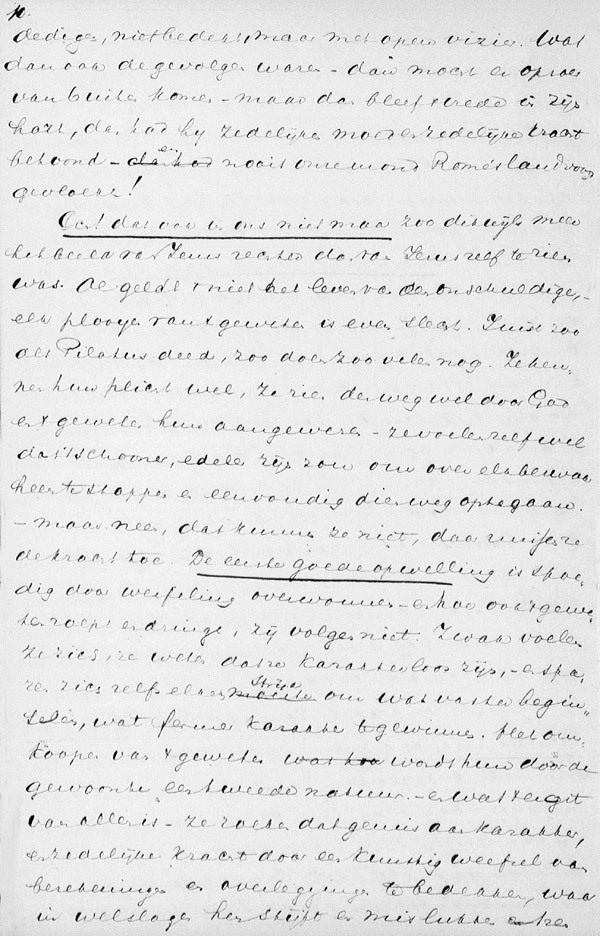 10.
dedigen, niet bedekt, maar met open vizier. Wat
dan ook de gevolgen waren – dan mocht er oproer
van buiten komen – maar dan bleef 't vrede in zijn
hart, dan had hij zedelijke moed en zedelijke kracht
betoond – en nooit
gevloekt!
Och! dat ook in ons niet maar zoo dikwijls meer
het beeld van Jezus rechter dan van Jezus zelf te zien
was. Al geldt 't niet het leven van den onschuldige, –
elk plooijen van 't geweten is even slecht. Juist zoo
als Pilatus deed, zoo doen zoo velen nog. Ze ken-
nen hun plicht wel, ze zien den weg wel door God
en 't geweten hun aangewezen – ze voelen zelf wel
dat 't schooner, edeler zijn zou om over alle bezwaren
heen te stappen en eenvoudig dien weg op te gaan.
– maar neen, dat kunnen ze niet, daar missen ze
de kracht toe. De eerste goede opwelling is spoe-
dig door weifeling overwonnen – en hoe ook 't gewe-
ten roept en dringt, zij volgen niet. Zwak voelen
ze zich, ze weten dat ze karakterloos zijn, – en spa-
ren zich zelfs elken strijd om wat vaster begin-
selen, wat fermer karakter te gewinnen. Het om-
koopen van 't geweten wordt hun door de
gewoonte een tweede natuur – en wat 't ergst
van alles is – ze zoeken dat gemis aan karakter,
en zedelijke kracht door een kunstig weefsel van
berekeningen en overleggingen te bedekken, waar
in welslagen hen stijft en mislukken